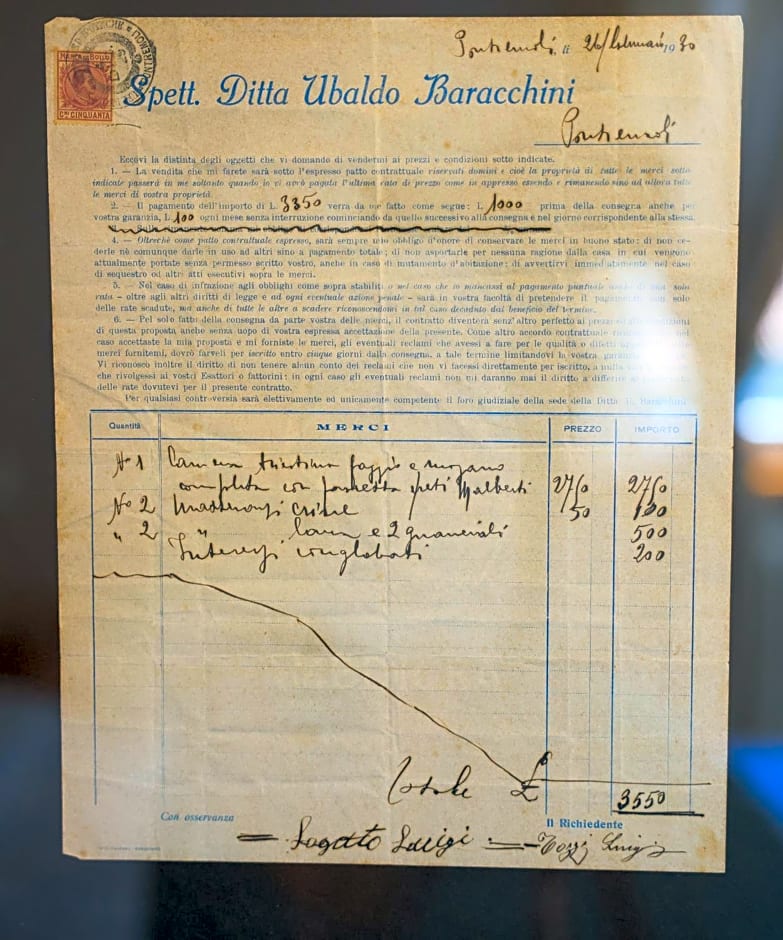 MARCA DA BOLLO
Cmi CINQUANTA
Pontremoli, li 26 febbraio 1930
Spett. Ditta Ubaldo Baracchini
Pontremoli
Eccovi la distinta degli oggetti che vi domando di vendermi ai prezzi e condizioni sotto indicate.
1. — La vendita che mi farete sarà sotto l'espresso patto contrattuale riservati domini e cioè la proprietà di tutte le merci sotto
indicate passerà in me soltanto quando io vi avrò pagata l'ultima rata di prezzo come in appresso essendo e rimanendo sino ad allora tutte
le merci di vostra proprietà.
2. — Il pagamento dell'importo di L. 3350 verrà da me fatto come segue: L. 1000 prima della consegna anche per
vostra garanzia, L. 100 ogni mese senza interruzione cominciando da quello successivo alla consegna e nel giorno corrispondente alla stessa.
4. — Oltrechè come patto contrattuale espresso, sarà sempre mio obbligo d'onore di conservare le merci in buono stato: di non ce-
derle nè comunque darle in uso ad altri sino a pagamento totale; di non asportarle per nessuna ragione dalla casa in cui vengono
attualmente portate senza permesso scritto vostro, anche in caso di mutamento d'abitazione; di avvertirvi immediatamente nel caso
di sequestro od altri atti esecutivi sopra le merci.
5. — Nel caso di infrazione agli obblighi come sopra stabiliti o nel caso io mancassi al pagamento puntuale anche di una sola
rata - oltre agli altri diritti di legge e ad ogni eventuale azione penale - sarà in vostra facoltà di pretendere il pagamento non solo
delle rate scadute, ma anche di tutte le altre a scadere riconoscendomi in tal caso decaduto dal beneficio del termine.
6. — Pel solo fatto della consegna da parte vostra delle merci, il contratto diventerà senz'altro perfetto ai prezzi e condizioni
di questa proposta anche senza uopo di vostra espressa accettazione della presente. Come altro accordo contrattuale nel
caso accettaste la mia proposta e mi forniste le merci, gli eventuali reclami che avessi a fare per qualità o difetti
merci fornitemi, dovrò farveli per iscritto entro cinque giorni dalla consegna, a tale termine limitandovi la vostra garanzia
Vi riconosco inoltre il diritto di non tenere alcun conto dei reclami che non vi facessi direttamente per iscritto, a nulla
che rivolgessi ai vostri Esattori o fattorini: in ogni caso gli eventuali reclami non mi daranno mai il diritto a differire
delle rate dovutevi per il presente contratto.
Per qualsiasi controversia sarà elettivamente ed unicamente competente il foro giudiziale della sede della Ditta U. Baracchini
Quantità MERCI PREZZO IMPORTO
No 1 Camera faggio e mogano
completa con 2750 2750
No 2 Materassi crine 50 100
" 2 " lana e 2 guanciali 500
Interessi conglobati 200
Totale £ 3550
Con osservanza
Il Richiedente
Luigi Luigi